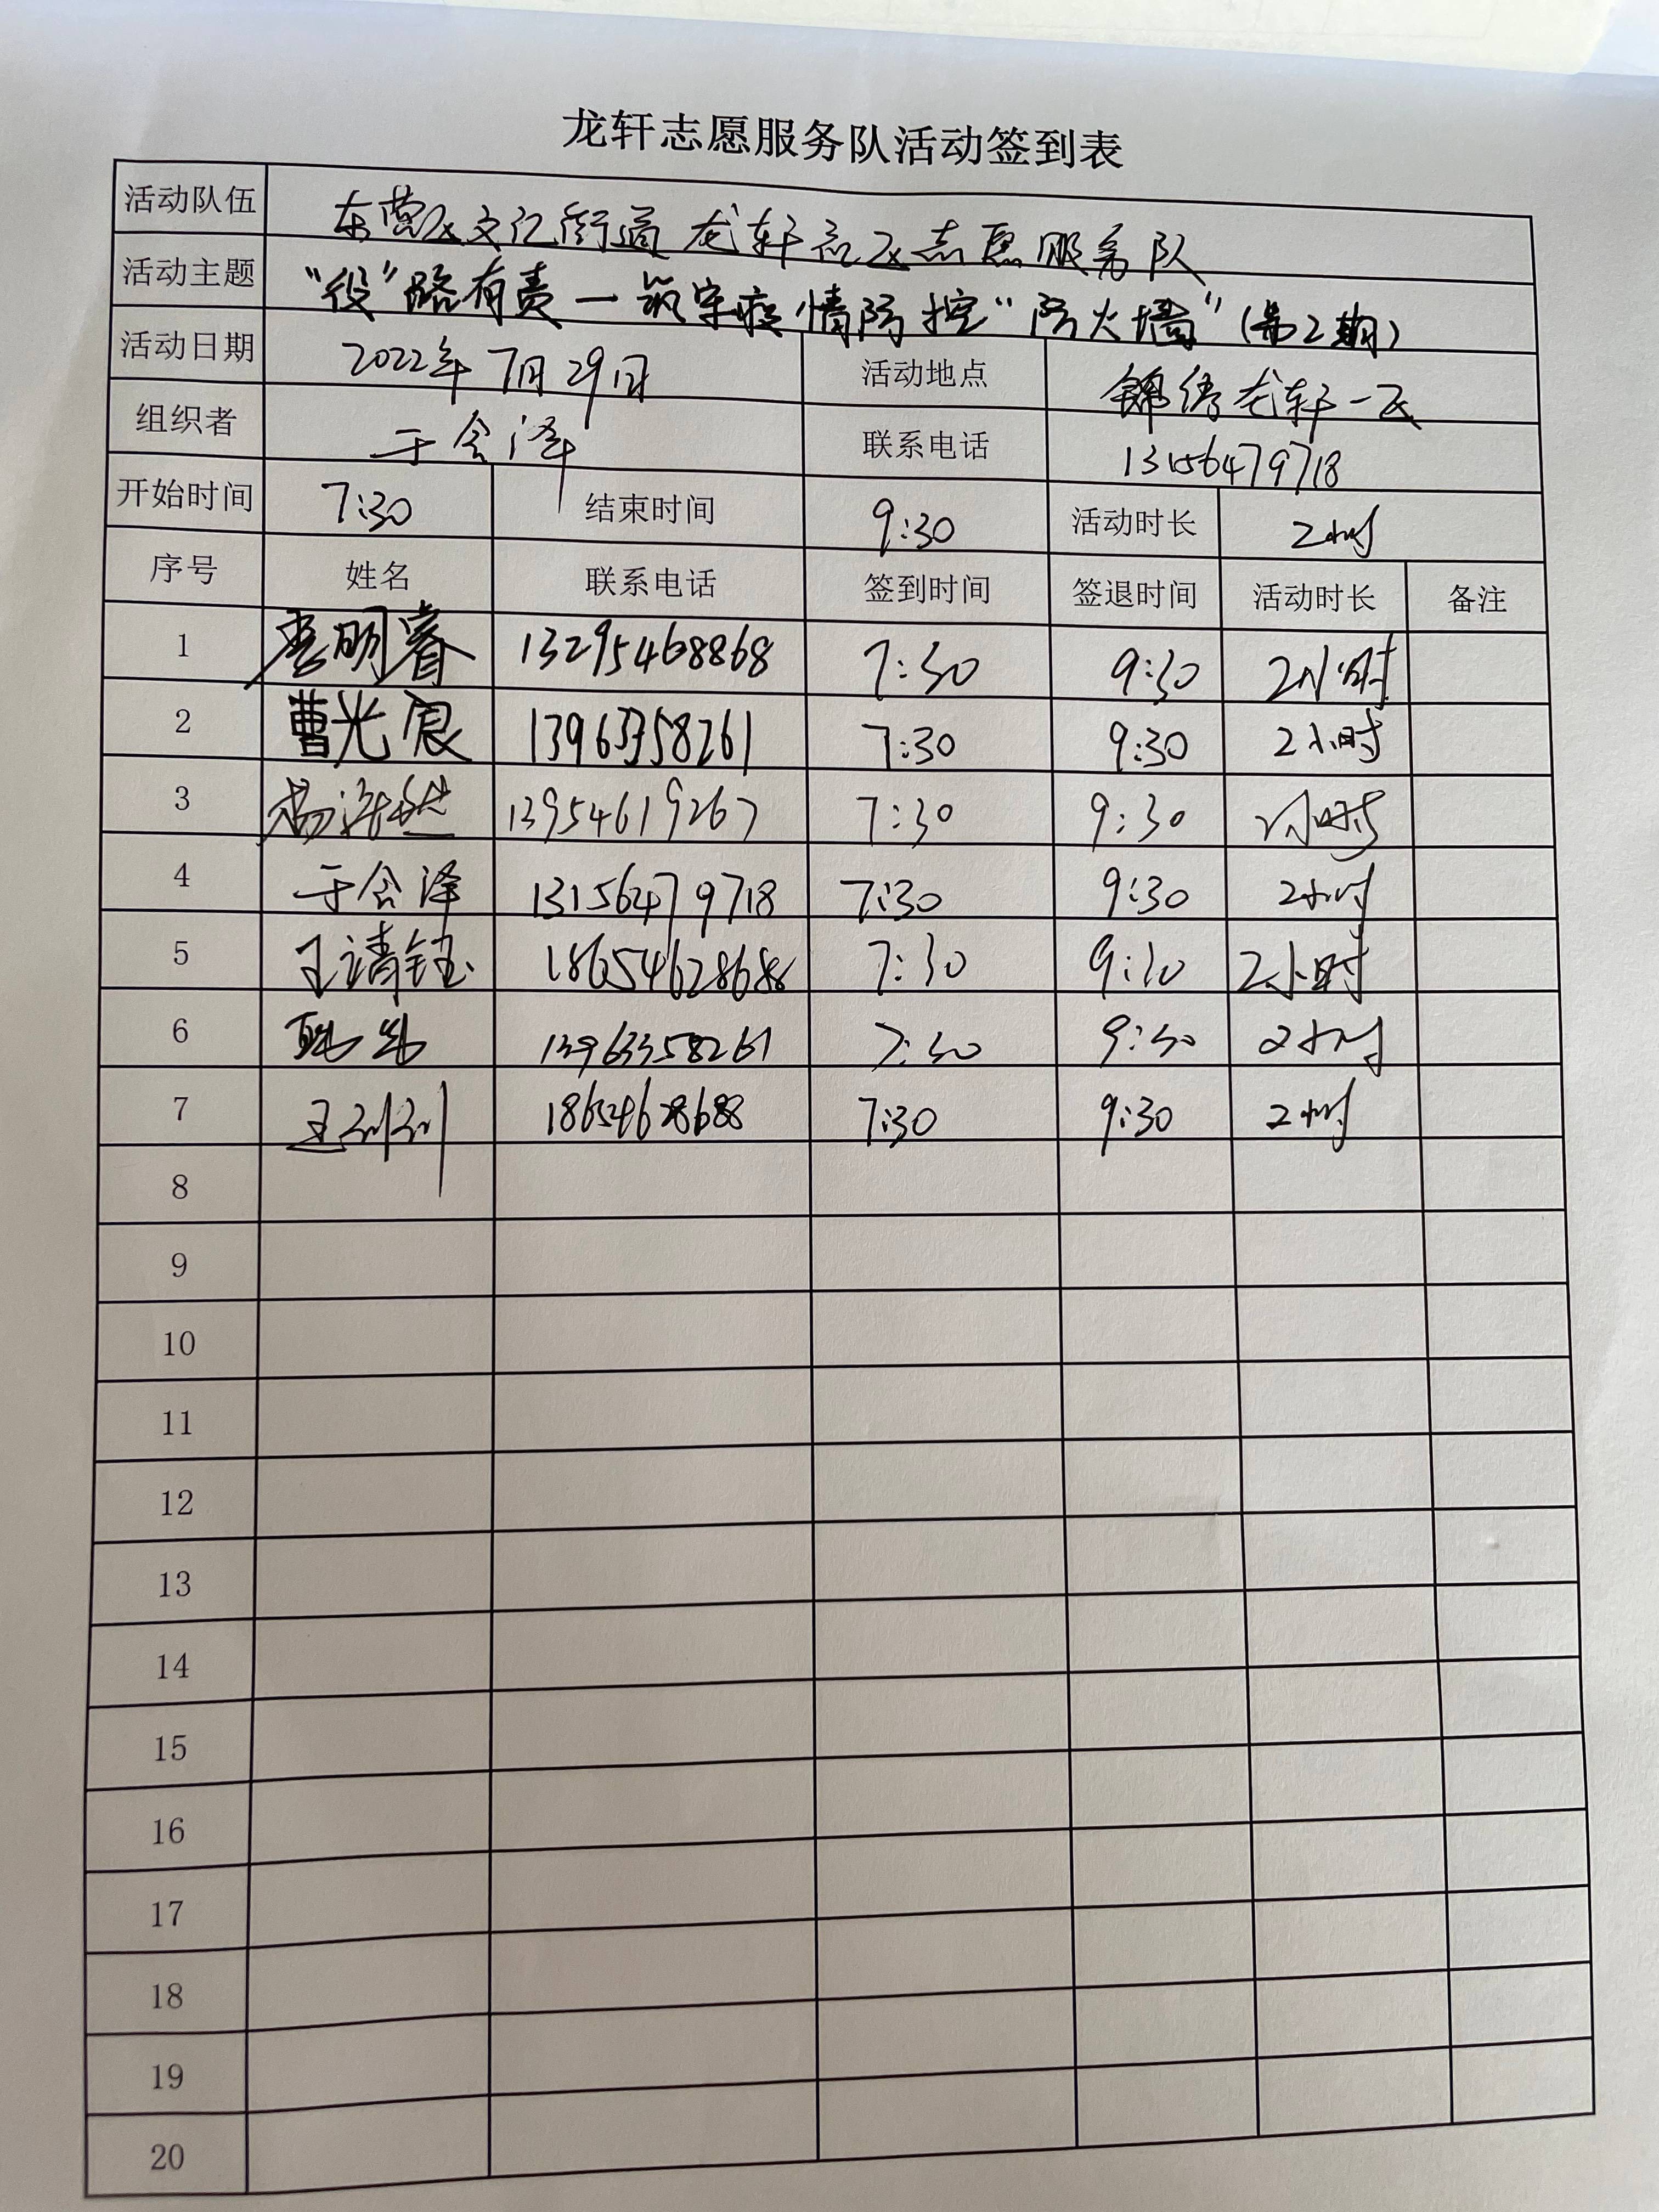 龙轩志愿服务队活动签到表
活动队伍 东营区文汇街道龙轩社区志愿服务队
活动主题 “役”路有责一筑牢疫情防控“防火墙”(第2期)
活动日期 2022年7月29日 活动地点 锦绣龙轩一区
组织者 于会泽 联系电话 13156479718
开始时间 7:30 结束时间 9:30 活动时长 2小时
序号 姓名 联系电话 签到时间 签退时间 活动时长 备注
1 李明睿 13295468868 7:30 9:30 2小时
2 曹光宸 13963358261 7:30 9:30 2小时
3 杨浩然 13954619267 7:30 9:30 2小时
4 于会泽 13156479718 7:30 9:30 2小时
5 王靖钰 18654628688 7:30 9:30 2小时
6 13963358261 7:30 9:30 2小时
7 18654628688 7:30 9:30 2小时
8
9
10
11
12
13
14
15
16
17
18
19
20